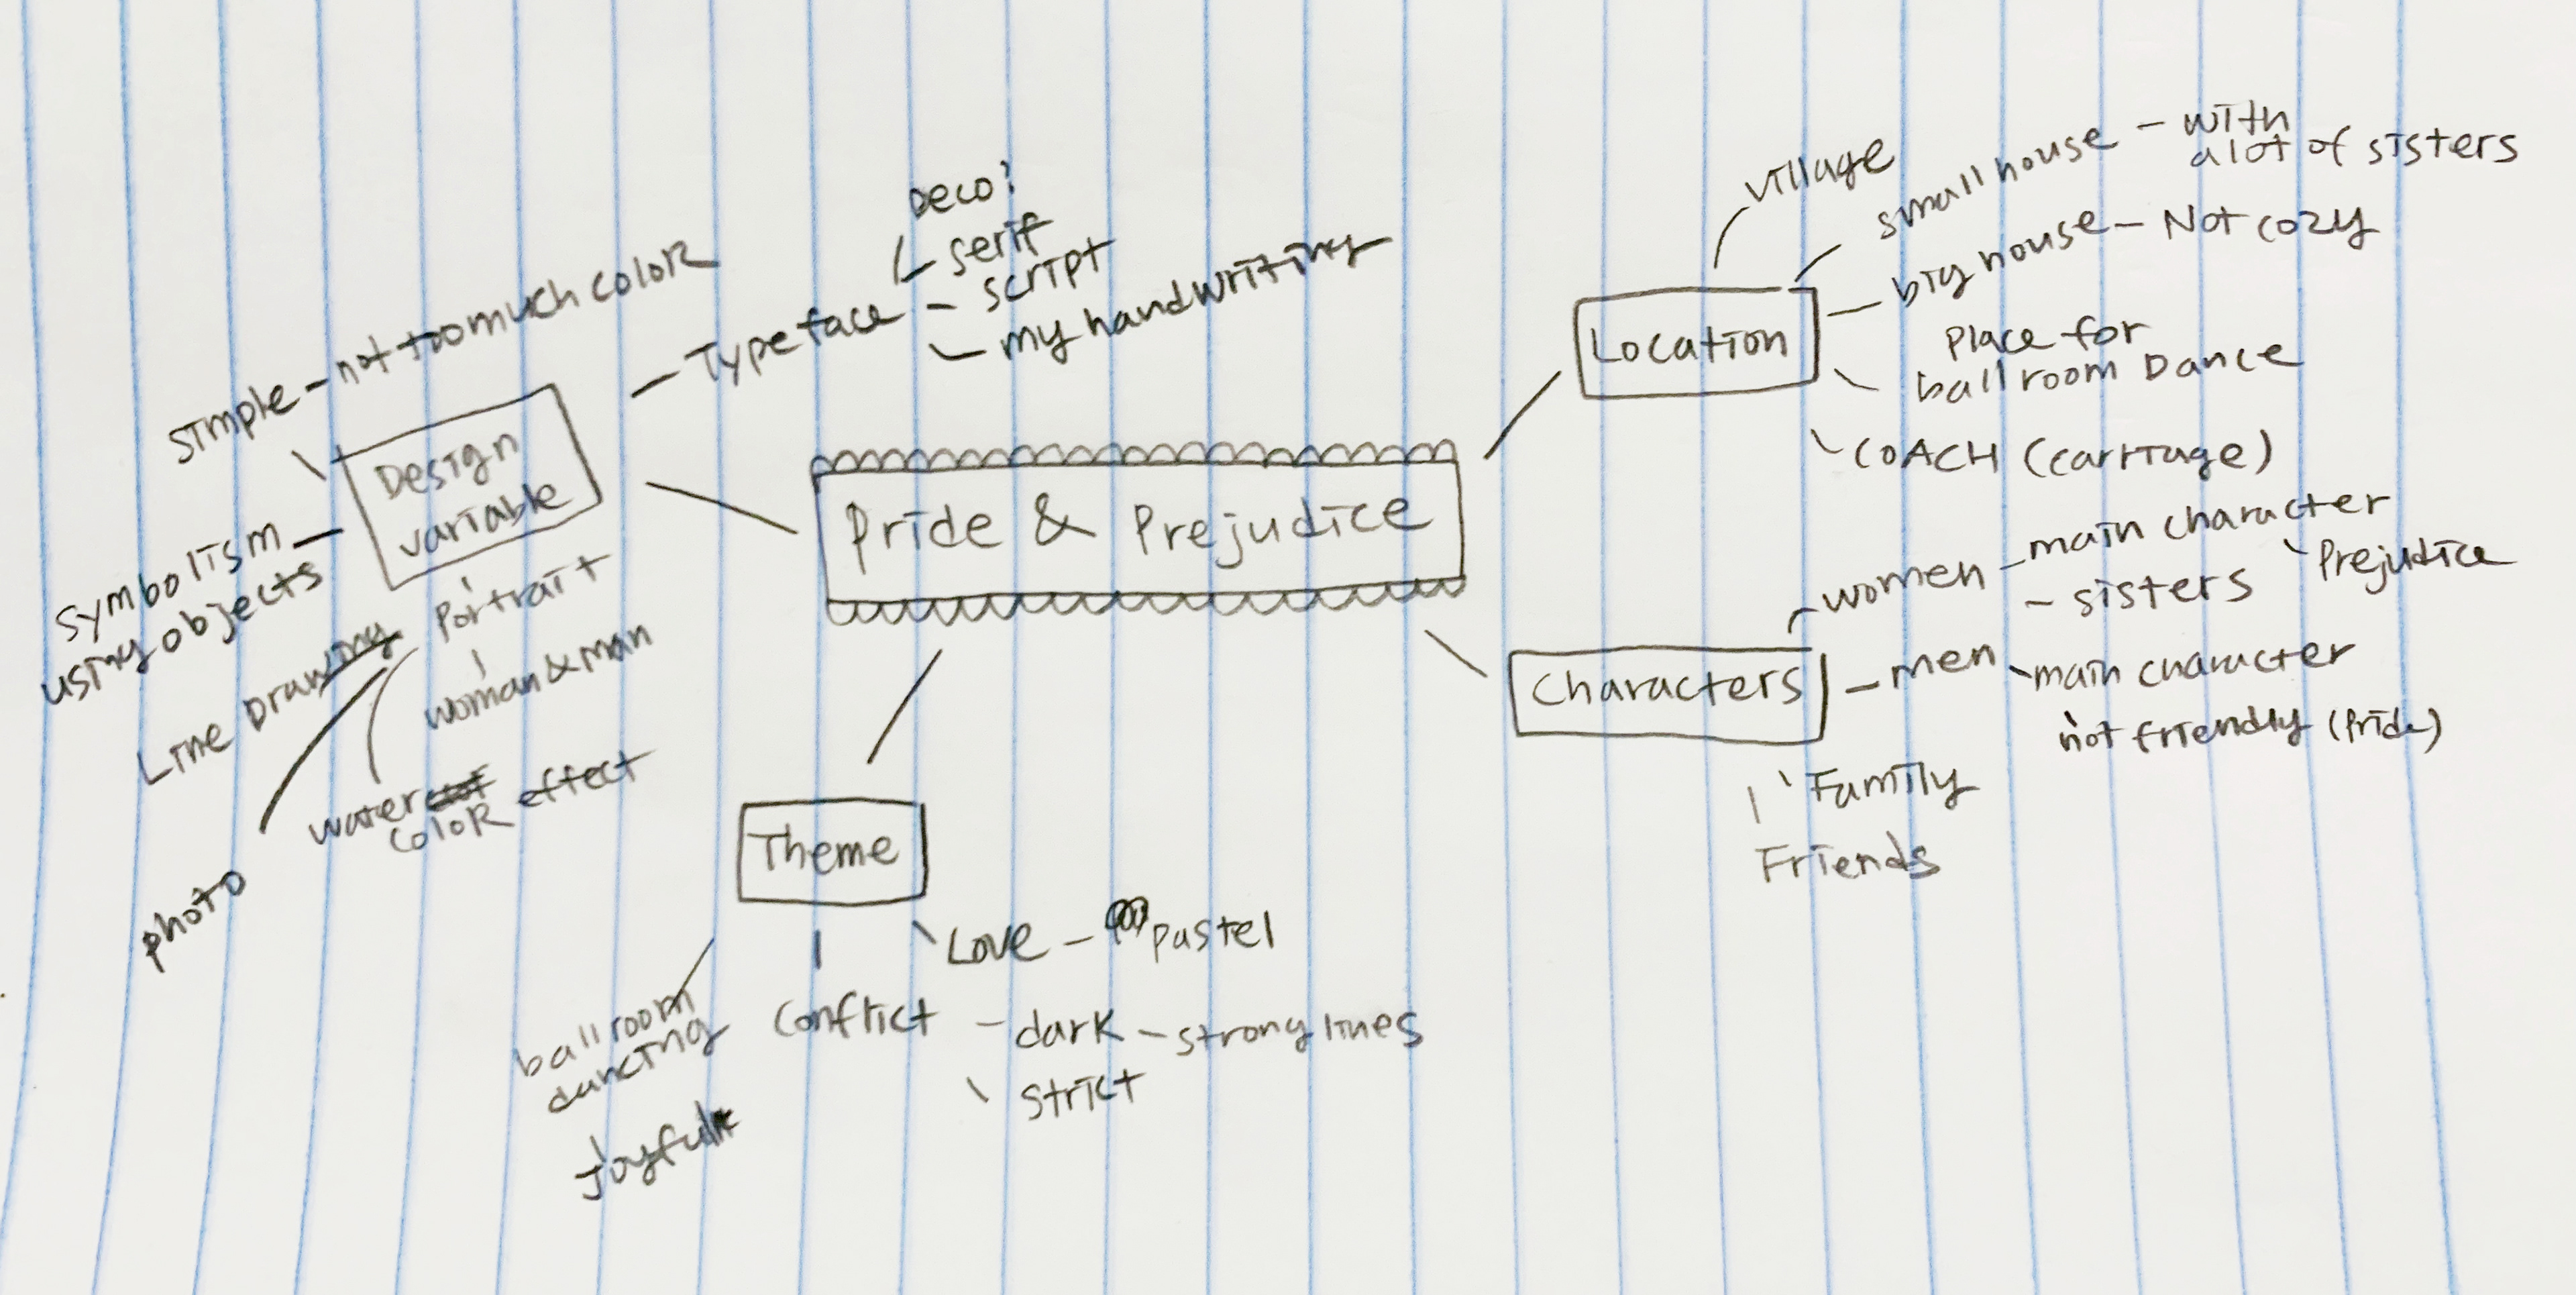 Pride & Prejudice
Design
variable
simple - not too much color
symbolism
using objects
Portrait
woman & man
Line Drawing
photo
water
color effect
Typeface
Deco?
serif
script
my handwriting
Location
village
small house - with
a lot of sisters
big house - Not cozy
Place for
ballroom Dance
COACH (carriage)
Characters
women - main character
Prejudice
- sisters
men - main character
not friendly (Pride)
Family
Friends
Theme
Love - pastel
Conflict - dark - strong lines
strict
ballroom
dancing
Joyful